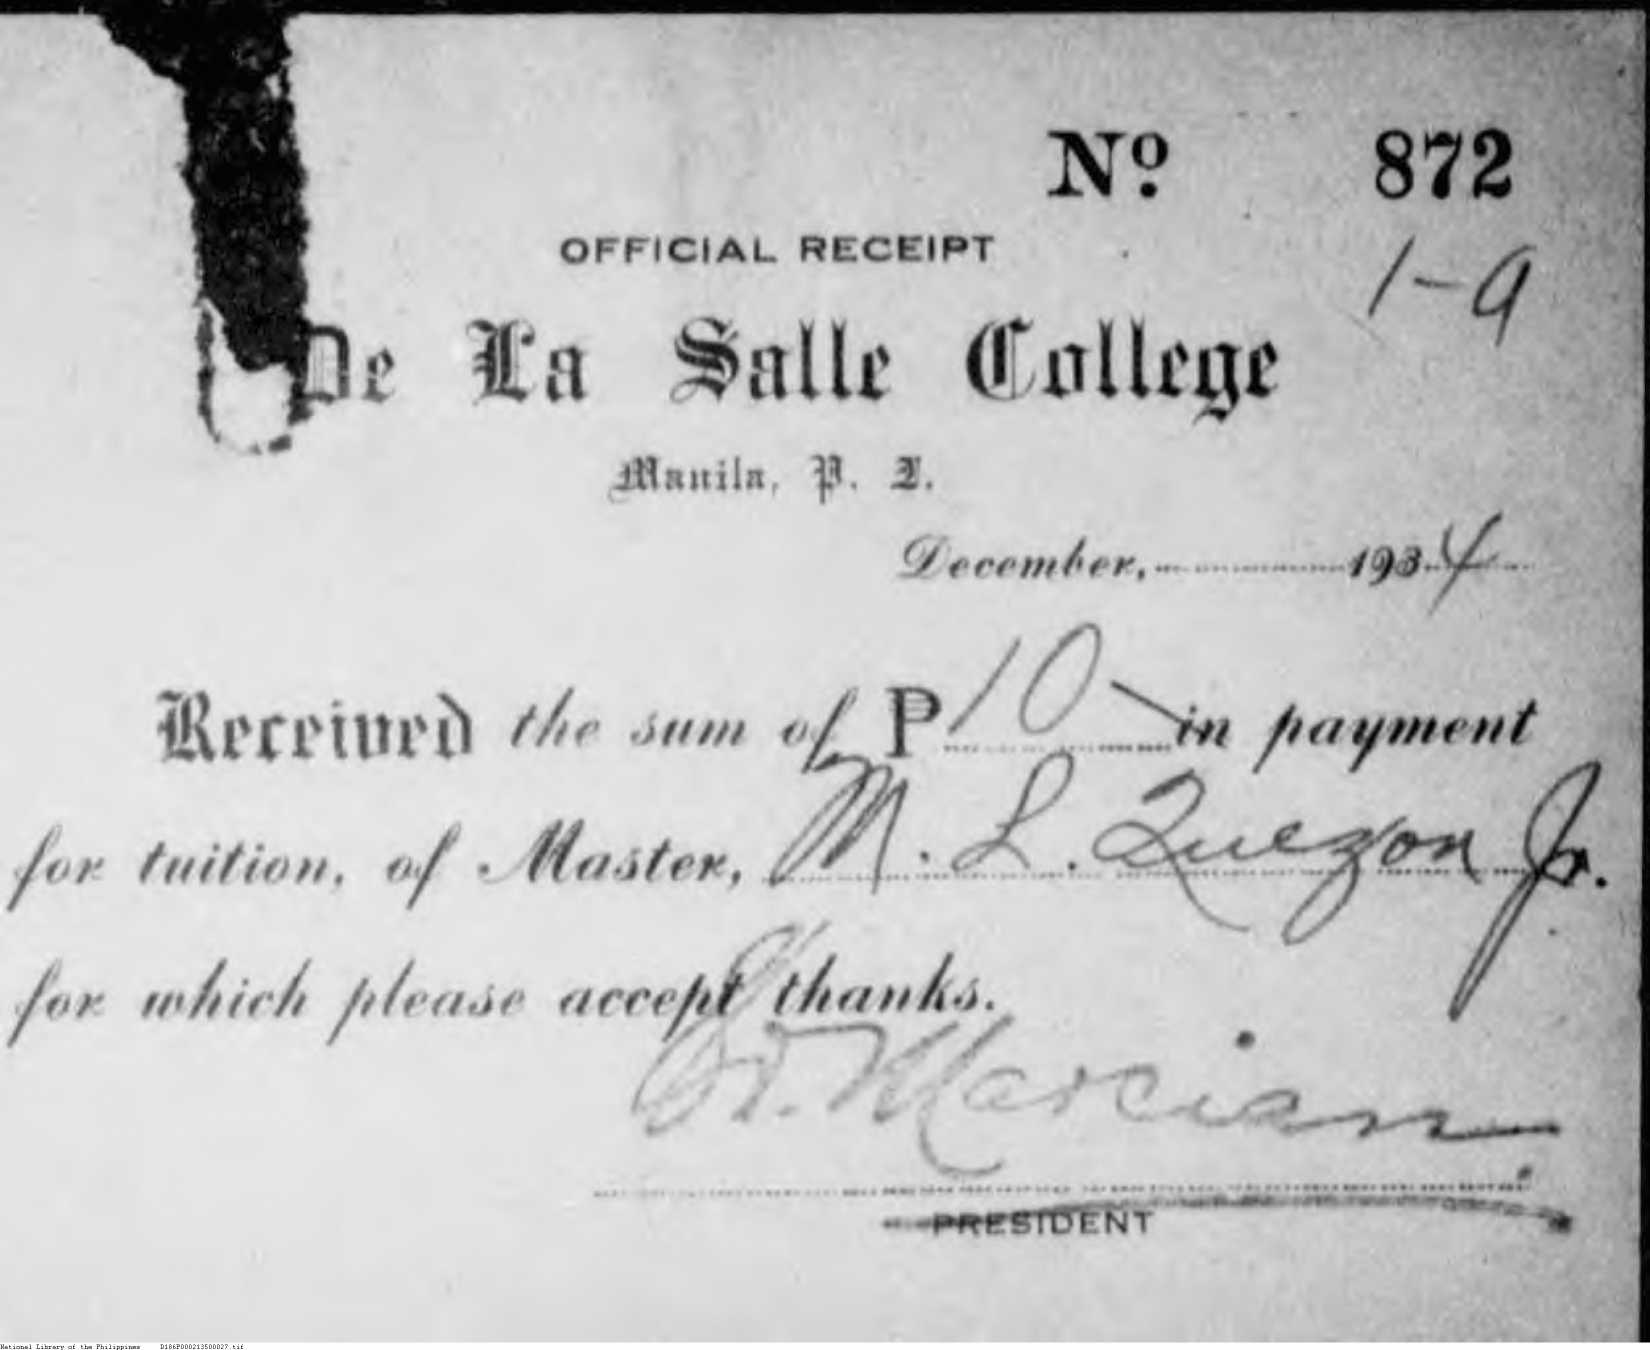 Nº 872
OFFICIAL RECEIPT
1-9
De La Salle College
Manila, P. I.
December, 1934
Received the sum of P10 — in payment
for tuition, of Master, M. L. Quezon Jr.
for which please accept thanks.
Marcian
PRESIDENT
National Library of the Philippines D186P000213500027.tif